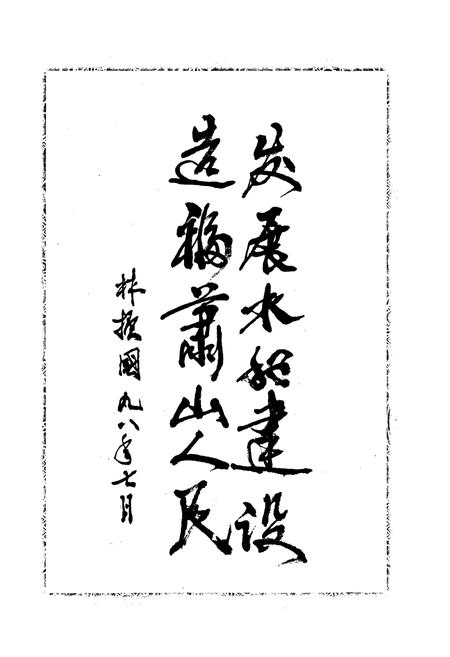 发展水利建设
造福蕭山人民
林振國九八年七月